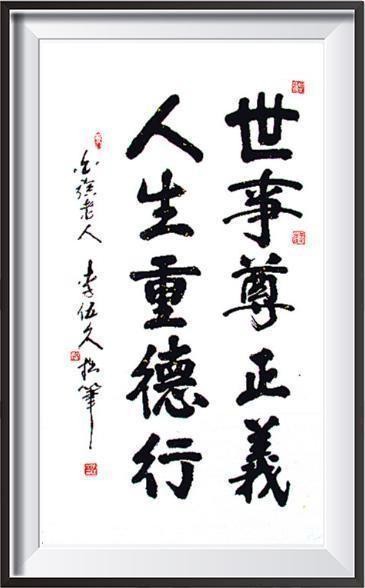 世事尊正義
人生重德行
老人 李伍久拙筆